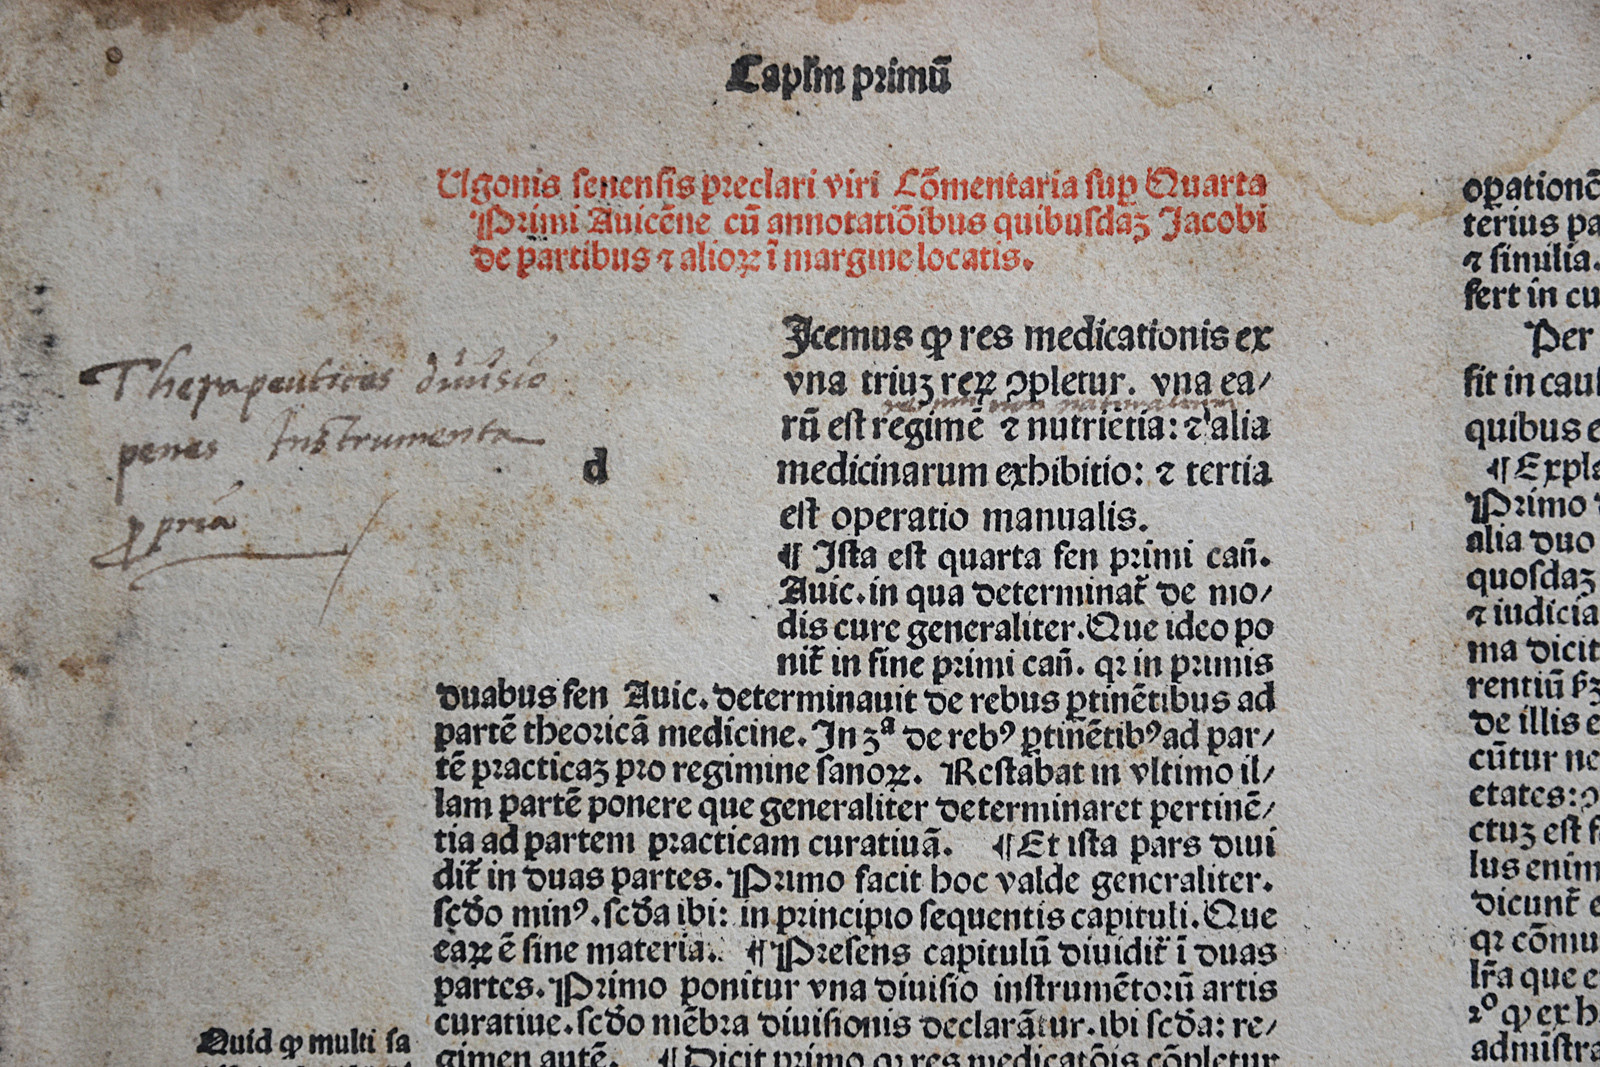 Caplm primũ
Ugonis senensis preclari viri Cõmentaria sup Quarta
Primi Auicẽne cũ annotatiõibus quibusdaꝫ Jacobi
de partibus ⁊ alioꝝ ĩ margine locatis.
Therapeutices diuisio
penes Instrumenta
ꝓpria
d
Jcemus ꝙ res medicationis ex
vna triuꝫ reꝝ ↄpletur. vna ea/
rũ est regimẽ ⁊ nutrietia: ⁊ alia
medicinarum exhibitio: ⁊ tertia
est operatio manualis.
¶ Ista est quarta fen primi cañ.
Auic. in qua determinat̃ de mo/
dis cure generaliter. Que ideo po
nit̃ in fine primi cañ. qꝛ in primis
duabus fen Auic. determinauit de rebus ꝑtinẽtibus ad
partẽ theoricã medicine. In 3ª de rebꝰ ꝑtinẽtibꝰ ad par/
tẽ practicaꝫ pro regimine sanoꝝ. Restabat in vltimo il/
lam partẽ ponere que generaliter determinaret pertinẽ/
tia ad partem practicam curatiuã. ¶ Et ista pars diui
dit̃ in duas partes. Primo facit hoc valde generaliter.
scd̃o minꝰ. scd̃a ibi: in principio sequentis capituli. Que
eaꝝ ẽ sine materia. ¶ Presens capitulũ diuidit̃ ĩ duas
partes. Primo ponitur vna diuisio instrumẽtorũ artis
curatiue. scd̃o mẽbra diuisionis declarãtur. ibi scd̃a: re/
gimen autẽ. ¶ Dicit primo qꝛ res medicatõis cõpletur
Quid ꝙ multi sa
oꝑationẽ
terius pa
⁊ similia.
fert in cu
Per
fit in cau
quibus e
¶ Expla
Primo
alia duo
quosdaꝫ
⁊ iudicia
ma dicit
rentiũ
de illis e
cũtur ne
etates: ↄ
ctuꝫ est f
lus enim
dicunt̃ e
qꝛ cõmu
lr̃a que e
2º ꝙ ex h
admistra